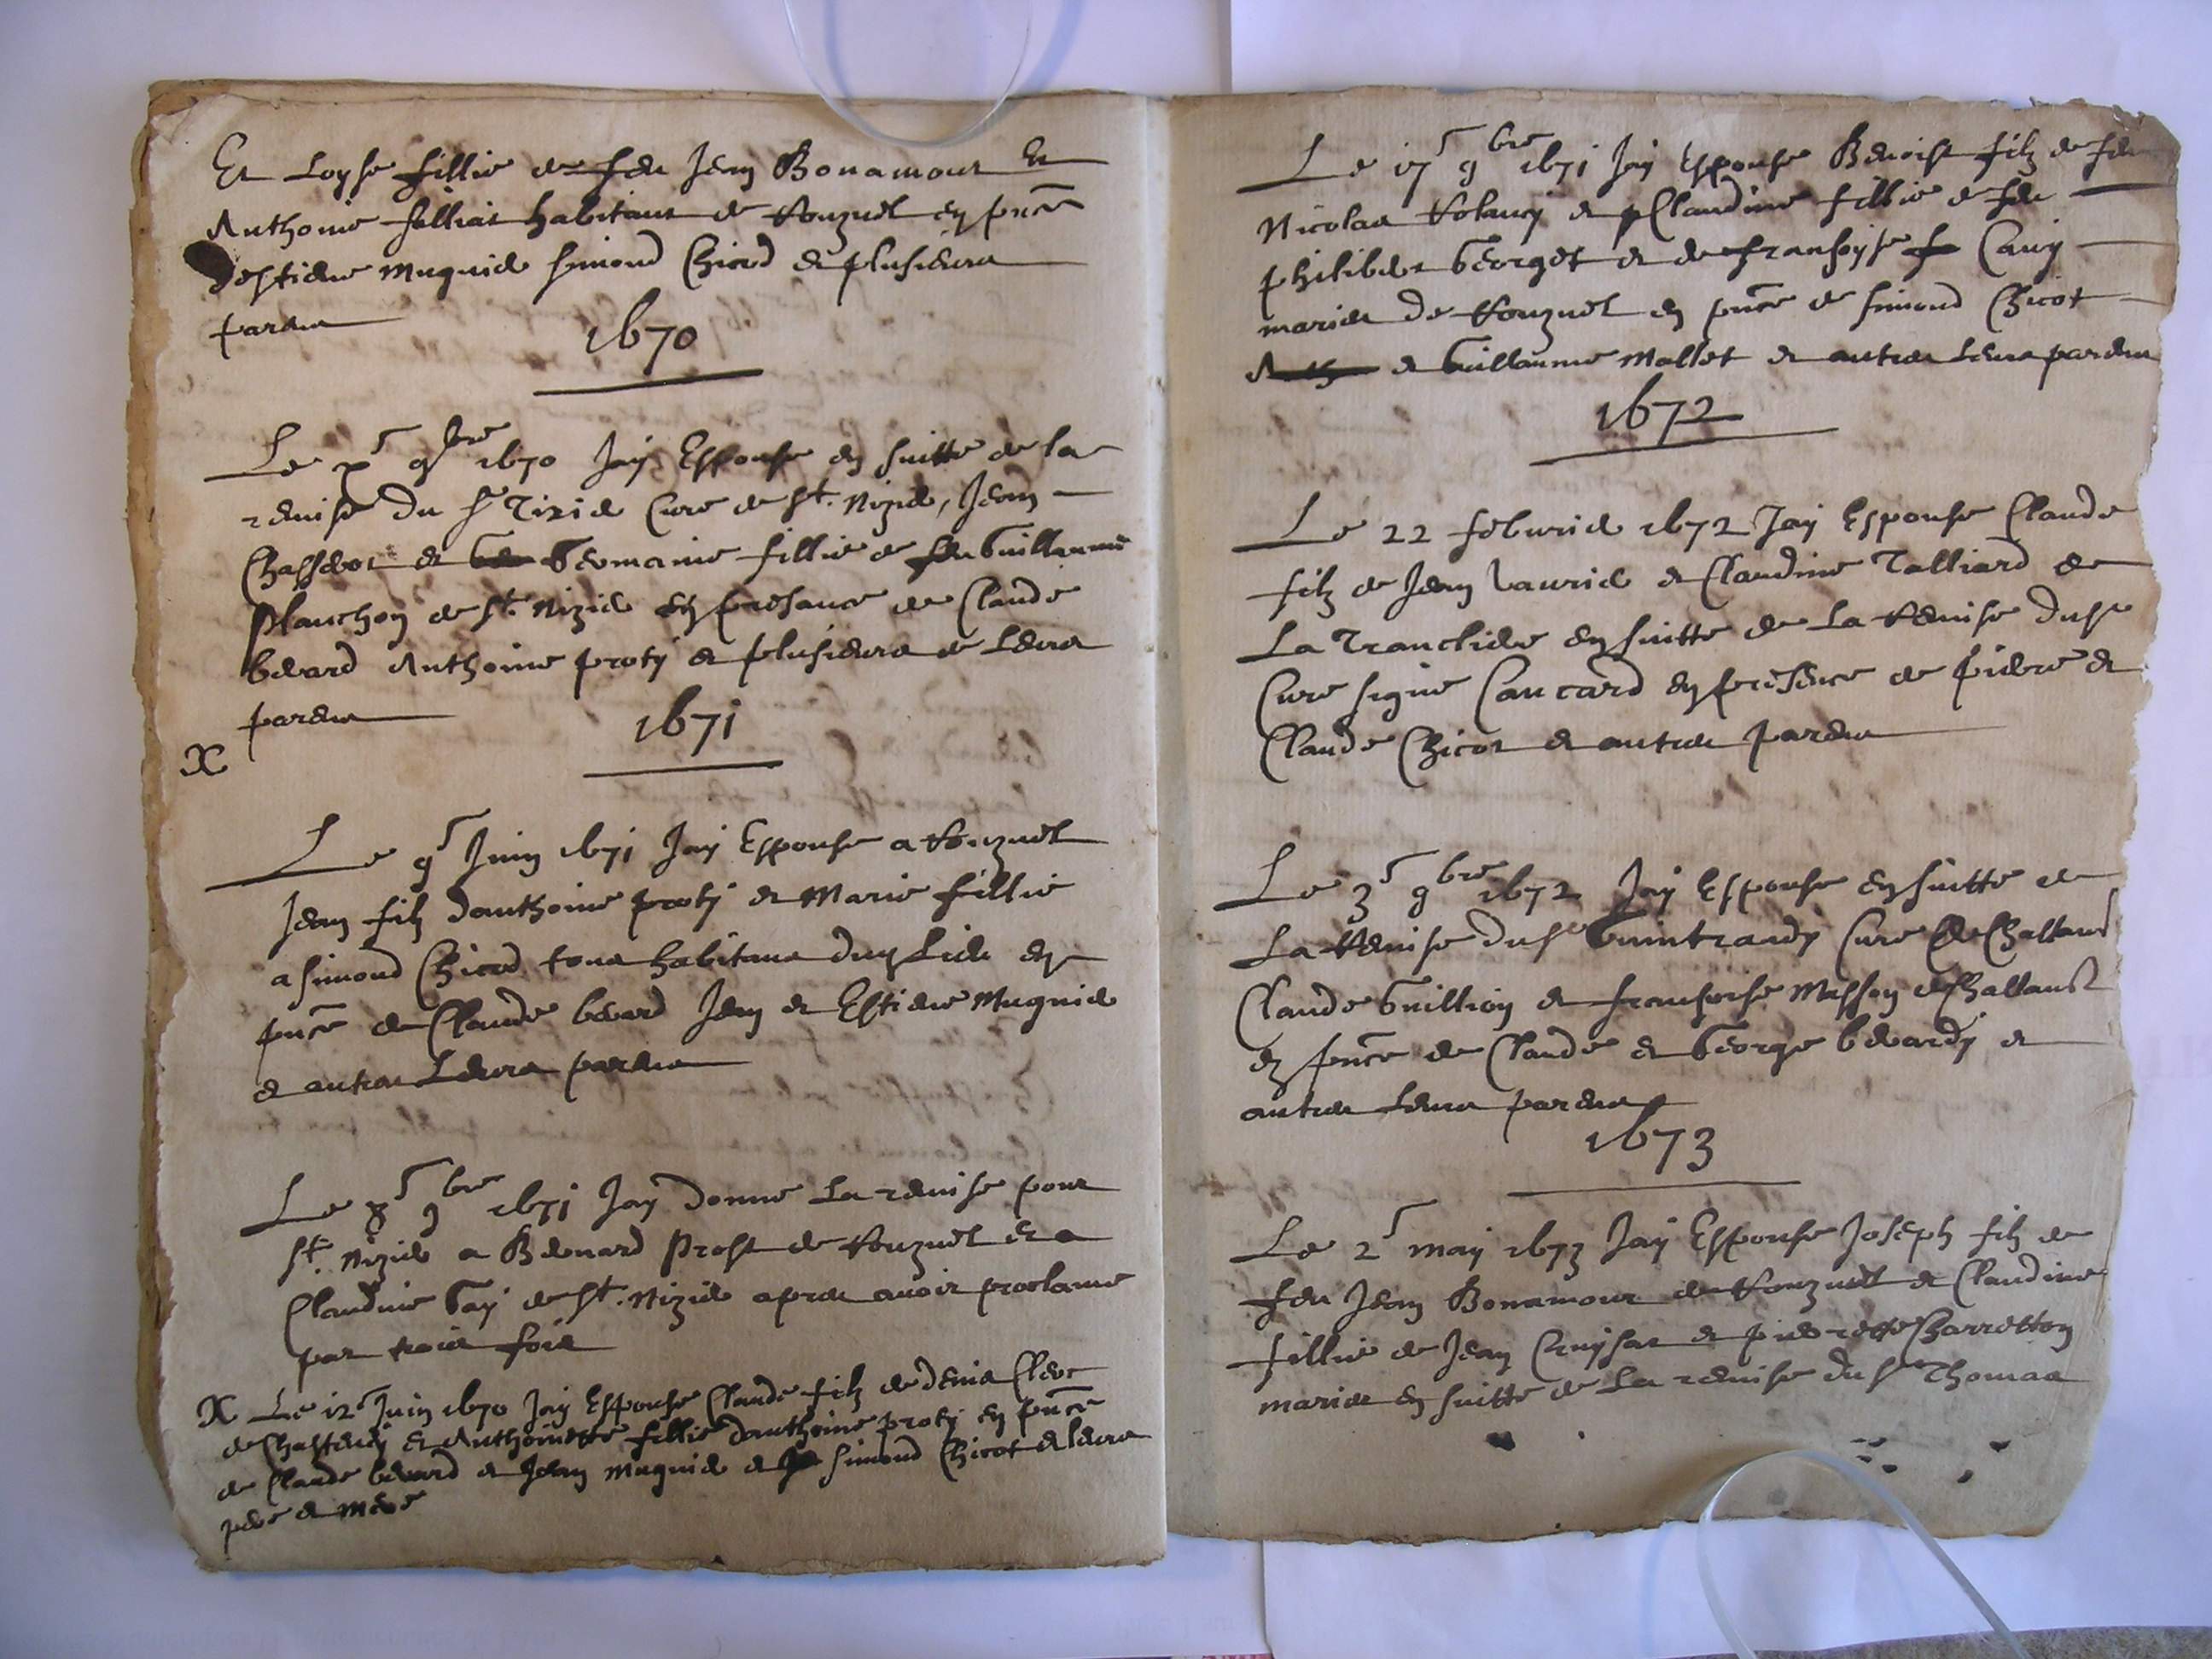 Et Loyse fillie de feu Jean Bonamour Et
Anthonie falliat habitant de Rouzuel en pnce
destiene Muguié simond Chicod et plusieurs
parens
1670
Le 9bre 1670 Jay Espouse en suitte de la
remise du sr Tirié Cure de St. Nizié, Jean
et Germaine fillie de feu Guillaume
Planchon de St Nizié en presance de Claude
berard Anthoine proty et plusieurs de Leurs
parens
1671
X
Le 9r Juin 1671 Jay Espouse a Rouzuel
Jean filz danthoine proty et Marie fillie
a simond Chicod tous habitans dug Lieu en
pnce de Claude berard Jean et Estiene Muguié
et autres Leurs parens
Le 9bre 1671 Jay donne La remise pour
St. Nizié a Benard Prost de Rouzuel et a
Claudine Gay de St. Nizié apres avoir proclame
par trois fois
X Le 12r Juin 1670 Jay Espouse Claude filz de denis Clerc
de Chasteney et Anthoinette fillie danthoine proty en pnce
de Claude berard et Jean Muguié et simond Chicot et leurs
pere et mere
Le 17r 9bre 1671 Jay Espouse Benoist filz de feu
Nicolas et Claudine fillie de feu
philiber Georget et de fransoyse
maries de Rouzuel en pnce de simond Chicot
et Guillaume Mallet et autres Leurs parens
1672
Le 22 feburié 1672 Jay Espouse Claude
filz de Jean Laurié et Claudine Talliard de
La Trancliere en suitte de La Remise du sr
Cure signe Cancard en presence de piere et
Claude Chicot et autres parens
Le 3r 9bre 1672 Jay Espouse en suitte de
La Remise du sr Guintrandy Cure de Challand
Claude Guillion et fransoise Masson de Challand
en pnce de Claude et George berardy et
autres Leurs parens
1673
Le 2r may 1673 Jay Espouse Joseph filz de
feu Jean Bonamour de Rouzuel et Claudine
fillie de Jean Cruysat et pierrette Charretton
maries en suitte de La remise du sr Thomas